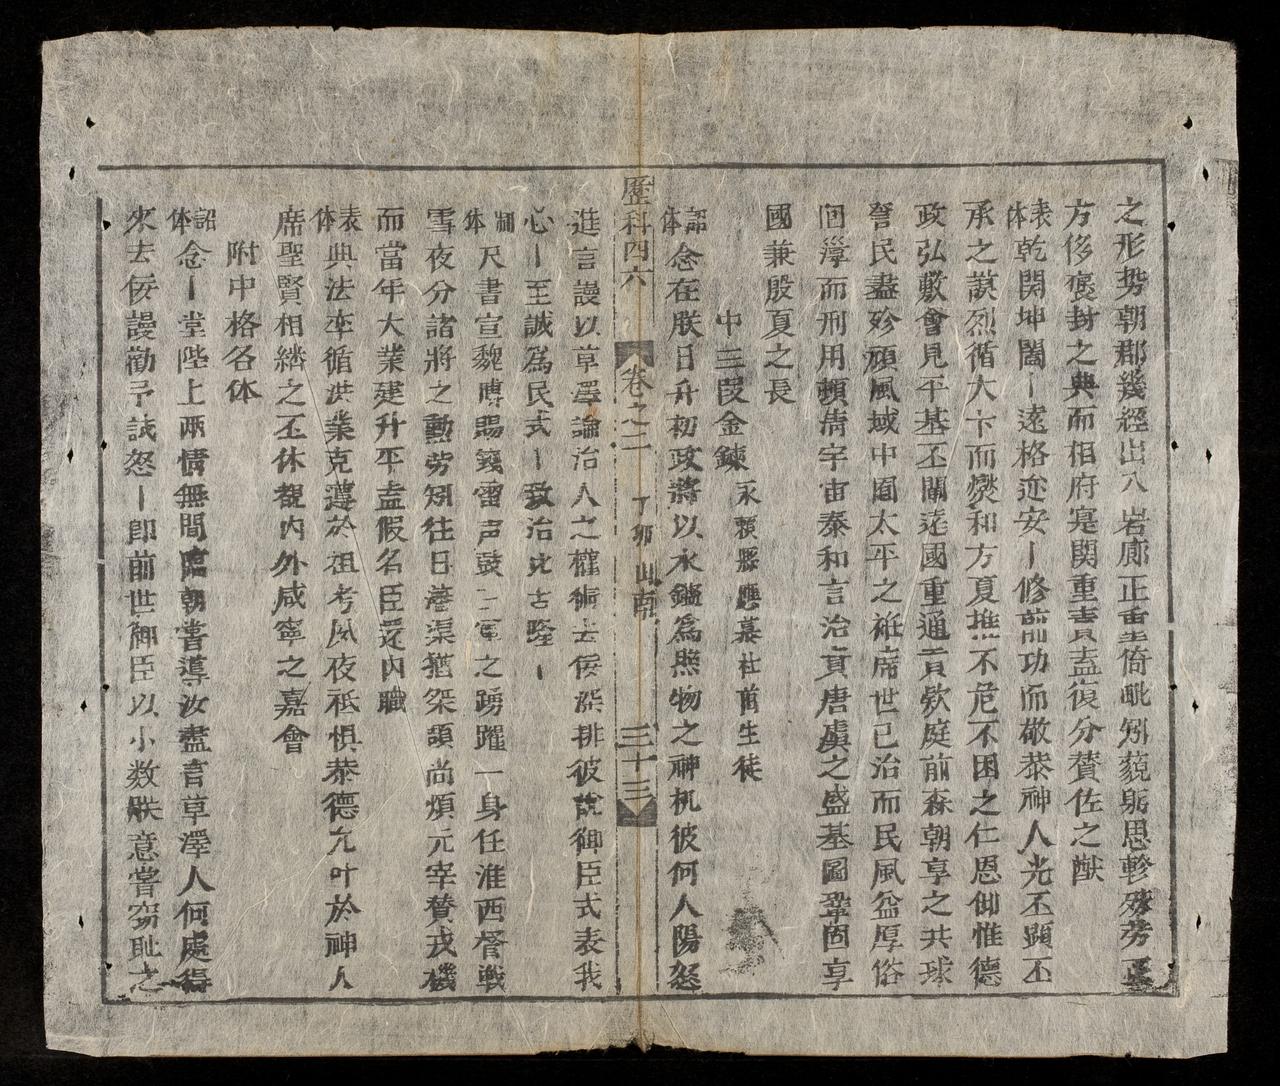 之形势朝郡幾經出入岩廊正重倚毗矧藐躬思軫殊劳正
方侈褒封之典而相府寔関重責盍復分賛佐之猷
表体乾開坤闔丨遠格迩安丨修前功而敬恭神人光丕顕丕
承之謨烈循大卞而爕和方夏推不危不困之仁恩仰惟德
政弘敷會見平基丕闡遠國重通貢欵庭前森朝享之共球
詧民盡殄頑風域中囿太平之袵席世已治而民風益厚俗
囬淳而刑用頓清宇宙泰和言治賁唐虞之盛基圖鞏固享
國兼殷夏之長
中三叚金鍊 永賴縣應慕社前生徒
詔体念在朕日升初政將以水鑑為照物之神机彼何人陽怒
歷科四六 卷之二 丁卯 山南 三十三
進言謾以草澤論治人之權術去佞深排彼說御臣式表我
心丨至誠為民式丨致治比古隆丨
制体尺書宣魏慱賜箋雷声鼓三軍之踴躍一身任淮西督戰
雪夜分諸將之勳劳矧往日港渠猶桀頡尚煩元宰賛戎機
而當年大業建升平盍假名臣还内職
表体典法率循洪業克遵於祖考夙夜祗惧恭德允叶於神人
席聖賢相綉之丕休覩内外咸寧之嘉會
附中格各体
詔体念丨堂陛上兩情無間臨朝嘗導汝盡言草澤人何處得
來去佞謾勸予試怒丨即前世御臣以小数朕意嘗窃耻之